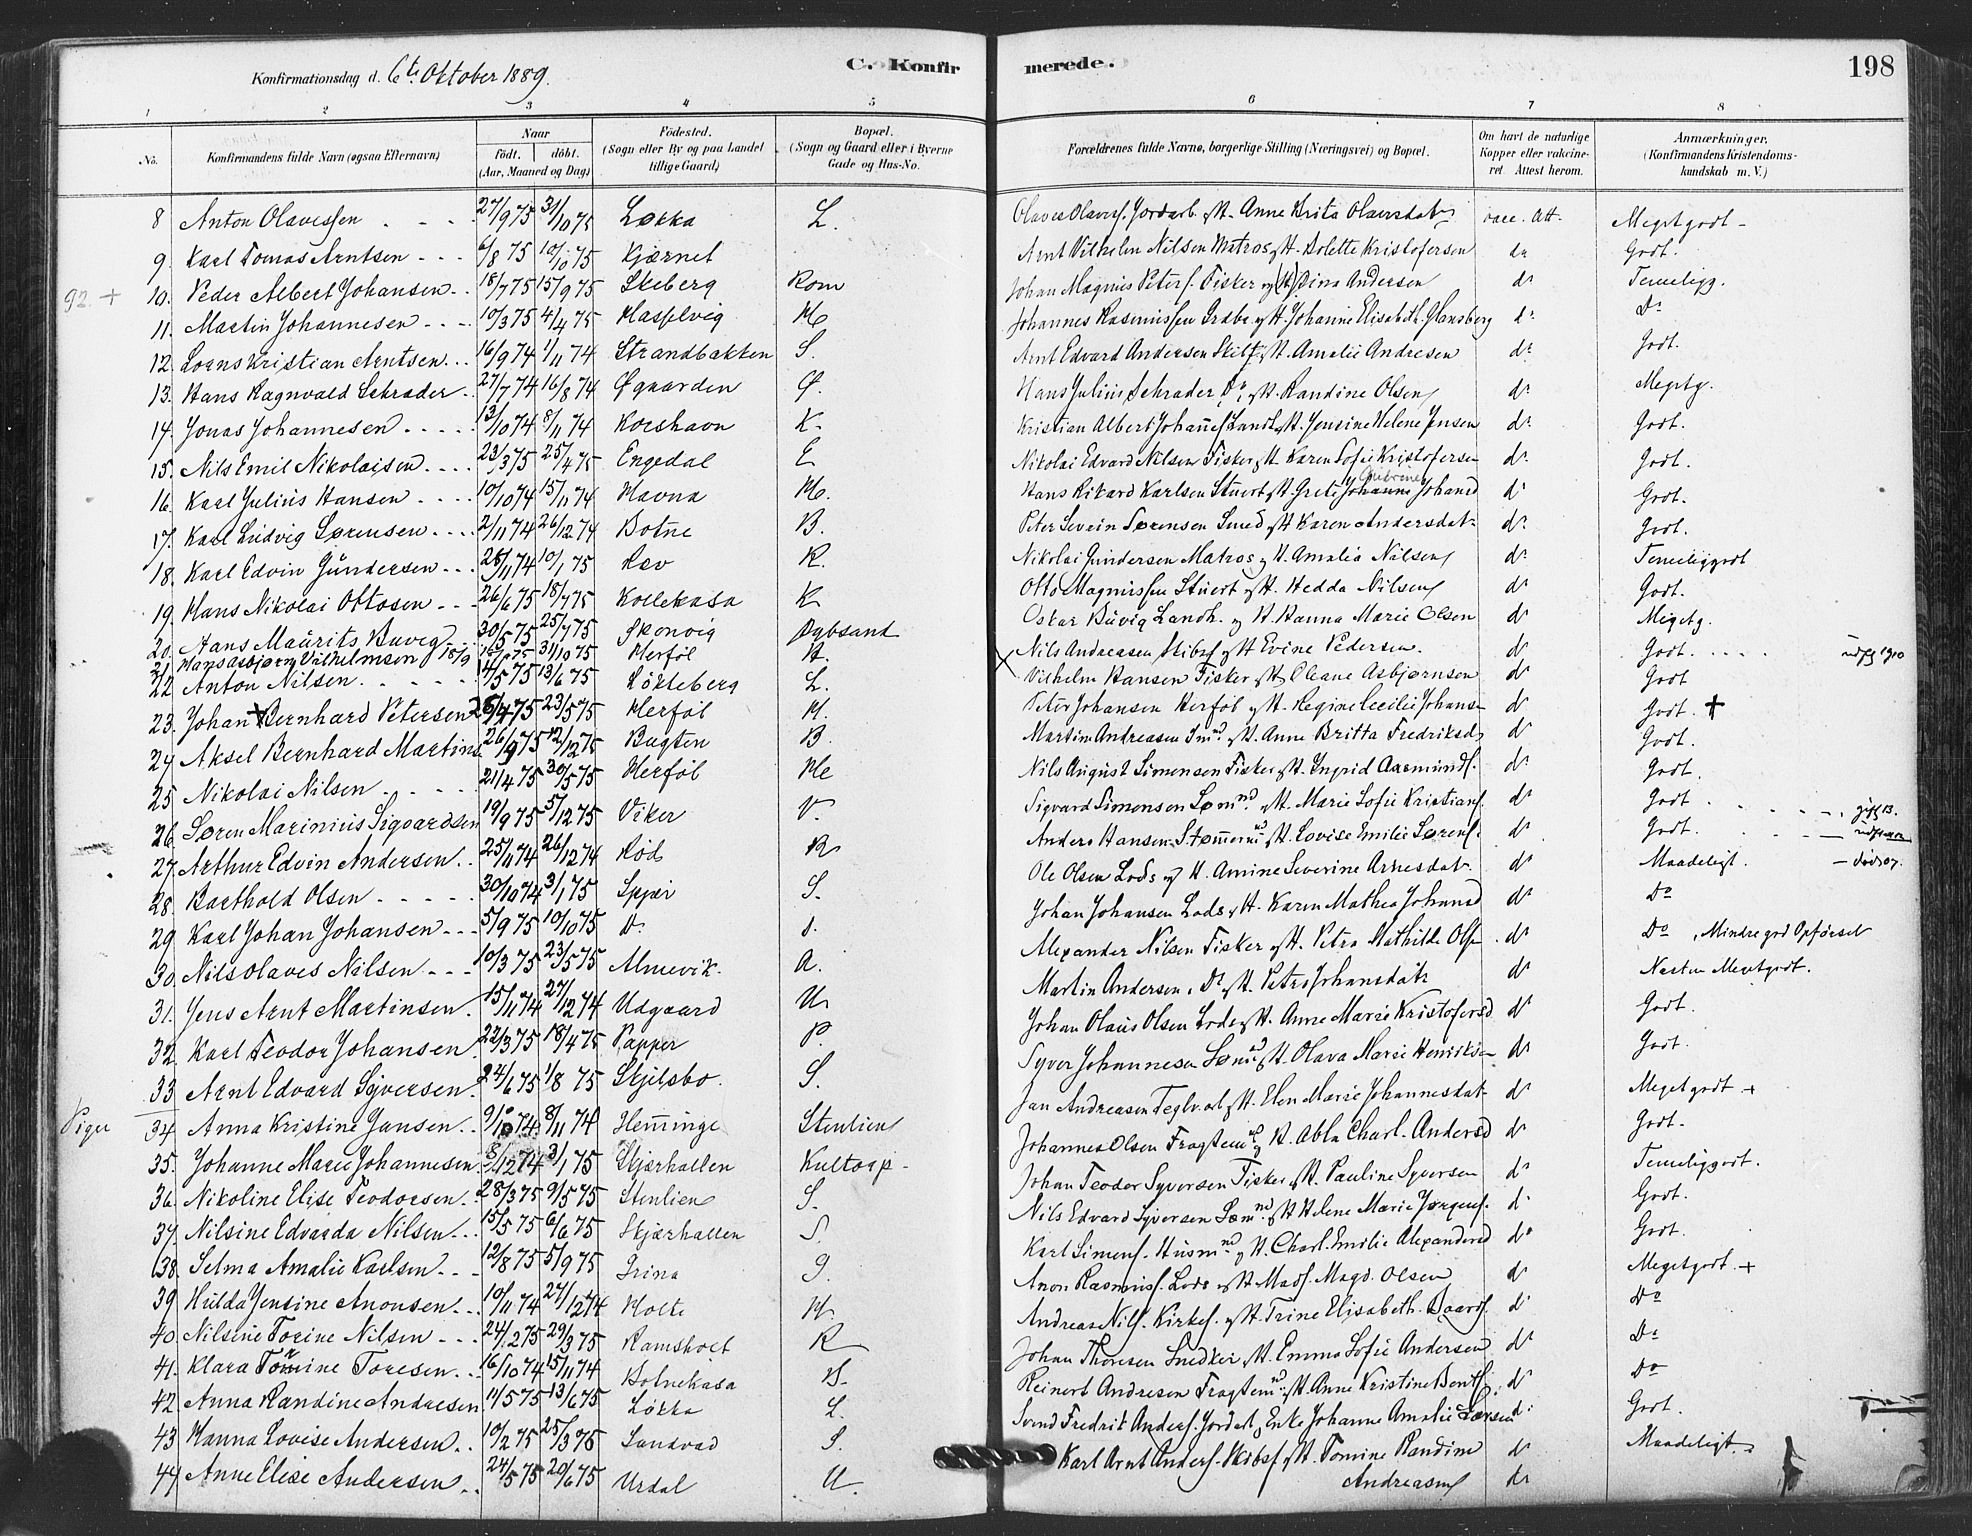 Konfirmationsdag d. 6te Oktober 1889.
C. Konfir merede.
198
1 2 3 4 5 6 7 8
No.
Konfirmandens fulde Navn (ogsaa Efternavn)
Naar
födt. döbt.
(Aar, Maaned og Dag)
Födested.
(Sogn eller By og paa Landet tillige Gaard)
Bopæl.
(Sogn og Gaard eller i Byerne Gade og Hus-No.
Forældrenes fulde Navne, borgerlige Stilling (Næringsvei) og Bopæl.
Om havt de naturlige Kopper eller vakcineret. Attest herom.
Anmærkninger.
(Konfirmandens Kristendomskundskab m. V.)
8 Anton Olavessen 27/9 75 31/10 75 Løkka L. Olaves Olavess. Jordarb. og H. Anne Brita Olavesdatr vacc. Att. Megetgodt
9. Karl Tomas Arntsen 6/8 75 10/10 75 Kjærnet Arnt Vilhelm Nilsen Matros og H. Bolette Kristofersen do Godt.
92 + 10. Peder Albert Johansen 18/7 75 15/9 75 Skeberg Rom Johan Magnus Peters. Fisker og (H) Dina Andersen do Temeligg.
11. Martin Johannesen 10/3 75 4/4 75 Haslevig H Johannes Rasmussen Grdbr. og H. Johanne Elisabeth Glansberg do Do
12. Lorns Kristian Arntsen 16/9 74 1/11 74 Strandbakken S. Arnt Edvard Andersen Skibf. og H. Amalie Andresen do Godt.
13. Hans Ragnvald Schrøder 27/7 74 16/8 74 Øgaarden Ø. Hans Julius Schrøder Do og H. Randine Olsen do Megetg.
14. Jonas Johannesen 13/10 74 8/11 74 Korshavn K. Kristian Albert Johanness. Landh. og H. Jensine Helene Jensen do Godt.
15. Nils Emil Nikolaisen 23/3 75 25/4 75 Engedal E Nikolai Edvard Nilsen Fisker og H. Karen Sofie Kristofersen do Godt.
16. Karl Julius Hansen 10/10 74 15/11 74 Havna H. Hans Rikard Karlsen Stuert og H. Grete Johanne Johansd do Godt.
17. Karl Ludvig Sørensen 2/11 74 26/12 74 Botne B. Peter Severin Sørensen Smed og H. Karen Andersdatr do Godt.
18. Karl Edvin Gundersen 28/11 74 10/1 75 Rev R. Nikolai Gundersen Matros og H. Amalia Nilsen do Temeliggodt
19. Hans Nikolai Ottosen 26/6 75 18/7 75 Kollekasa K Otto Magnussen Stuert og H. Hedda Nilsen do Godt.
20. Hans Maurits Buvig 30/5 75 25/7 75 Skonvig Dybsund Oskar Buvig Landh. og H. Hanna Marie Olsen do Megetg.
21. Hans Asbjørn Vilhelmsen 18/9 31/10 75 Herføl H. Nils Andreasen Skibsf. og H. Evine Pedersen. do Godt. udfl 1910
22 Anton Nilsen 14/5 75 13/6 75 Løkkeberg L. Vilhelm Hansen Fisker og H. Oleane Asbjørnsen do Godt
23. Johan Bernhard Petersen 25/4 75 23/5 75 Herføl H. Peter Johansen Herføl og H. Regine Cecilie Johans do Godt. +
24 Aksel Bernhard Martins 26/9 75 12/12 75 Bugten B. Martin Andreasen Smd. og H. Anne Britta Fredriksd do Godt.
25 Nikolai Nilsen 21/4 75 30/5 75 Herføl He Nils August Simensen Fisker og H. Ingrid Aasmunds. do Godt.
26 Søren Marinius Sigvardsen 19/9 75 5/12 75 Viker V. Sigvard Simensen Sømnd. og H. Marie Sofie Kristians. do Godt
27. Arthur Edvin Andersen 25/11 74 26/12 74 Rød R Anders Hansen Tømmernd og H. Lovise Emilie Sørens. do Godt.
28. Barthold Olsen 30/10 74 3/1 75 Spjær S. Ole Olsen Lods og H. Amine Severine Arnesdatr do Maadeligt. død 07.
29. Karl Johan Johansen 5/9 75 10/10 75 Do S. Johan Johansen Lods og H. Karen Mathea Johansd do Do
30. Nils Olaves Nilsen 10/3 75 23/5 75 Almevik. A. Alexander Nilsen Fisker og H. Petra Mathilde Ols do Do, Mindre god Opførsel
31. Jens Arnt Martinsen 15/11 74 27/12 74 Udgaard U Martin Andersen, Do og H. Petra Johansdatr do Næsten Megetgodt.
32. Karl Teodor Johansen 22/3 75 18/4 75 Papper P. Johan Olaus Olsen Lods og H. Anne Marie Kristofersd do Godt.
33 Arnt Edvard Syversen 24/6 75 1/8 75 Skjelsbo. S. Syver Johannesen Sømnd og H. Olava Marie Henriksen do Godt.
Piger 34 Anna Kristine Jansen 9/10 74 8/11 74 Hemminge Stenlien Jan Andreasen Teglv.arb. og H. Elen Marie Johannesdat do Megetgodt +
35. Johanne Marie Johannesen 8/12 74 3/1 75 Skjærhallen Kultorp Johannes Olsen Fragtemd og H. Abla Charl. Andersd do Godt.
36. Nikoline Elise Teodorsen 28/3 75 9/5 75 Stenlien S. Johan Teodor Syversen Fisker og H. Pauline Syversen do Temeliggodt.
37. Nilsine Edvarda Nilsen 15/5 75 6/6 75 Skjærhallen S. Nils Edvard Syversen Sømnd. og H. Helene Marie Jørgens. do Godt.
38. Selma Amalie Karlsen 12/8 75 5/9 75 Grina G. Karl Simens. Husmnd og H. Charl. Emilie Alexandersd do Godt.
39 Hulda Jensine Anonsen 10/11 74 27/12 74 Holte H. Anon Rasmuss. Lods og H. Mads. Magd. Olsen do Megetgodt +
40. Nilsine Torine Nilsen 24/1 75 29/3 75 Ramsholt R Andreas Nils. Kirkes. og H. Trine Elisabeth Baards. do Do
41. Klara Tomine Toresen 16/10 74 15/11 74 Botnekasa B. Johan Thoresen Snedker og H. Emma Sofie Andersen do Do
42. Anna Randine Andresen 11/5 75 13/6 75 Løkka L. Reinert Andresen Fragtemd. og H. Anne Kristine Bents. do Do
43 Hanna Lovise Andersen 10/2 75 25/3 75 Sandvad S. Svend Fredrik Anders. Jordat. Enke Johanne Amalie Larsen do Godt.
44 Anne Elise Andersen 24/5 75 20/6 75 Urdal U. Karl Arnt Anders. Skibsf. og H. Tomine Randine Andreasen do Maadeligt